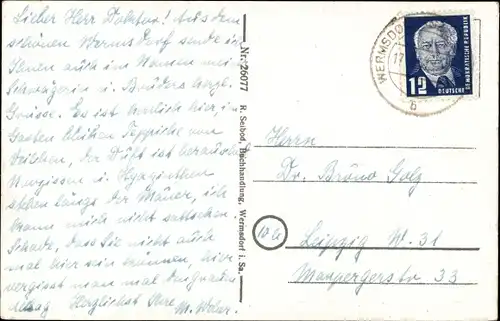 Lieber Herr Doktor! Aus dem
schönen Wermsdorf sende ich
Ihnen auch im Namen meiner
Schwägerin u. Bruders herzl.
Grüsse. Es ist herrlich hier, im
Garten blühen Teppiche von
Veilchen, der Duft ist berauschend
Narzissen u. Hyazinthen
stehen längs der Mauer, ich
kann mich nicht sattsehen.
Schade, dass Sie nicht auch
mal hier sein können, hier
vergisst man mal den grauen
Alltag Herzlichst Ihre
M. Weber.
Nr. 26077
R. Seibod, Buchhandlung, Wermsdorf i. Sa.
WERMSDO
17
b
12
DEUTSCHE
DEMOKRATISCHE REPUBLIK
Herrn
Dr. Bruno Golz
Leipzig W. 31
33